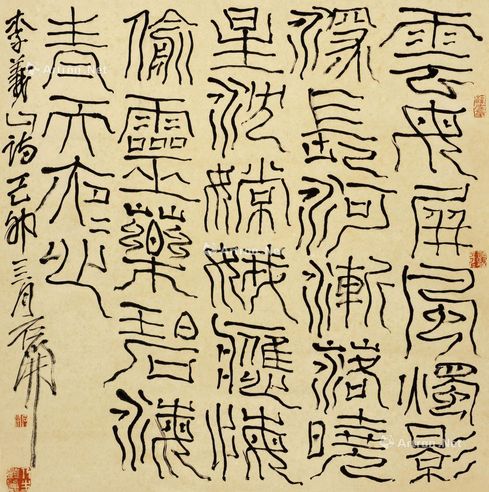 雲母屏風燭影
深長河漸落曉
星沈嫦娥應悔
偷靈藥碧海
青天夜心
李義山詩己卯三月石開
Artron.Net